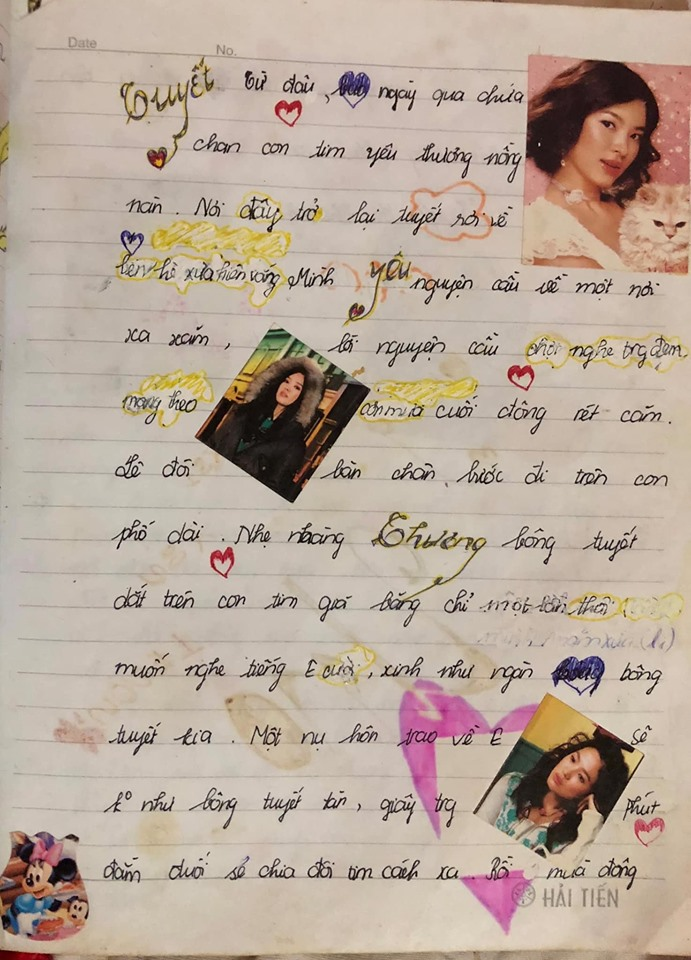 Date No.
Tuyết Từ đâu, ngày qua chứa
chan con tim yêu thương nồng
nàn. Nơi đây trở lại tuyết rơi về
bên hè xưa hiên vắng Minh yêu nguyện cầu về một nơi
xa xăm, lời nguyện cầu nghe trg đêm.
mang theo cơn mưa cuối đông rét căm.
Lê đôi bàn chân bước đi trên con
phố dài. Nhẹ nhàng Thương bông tuyết
dắt trên con tim giá băng chỉ một lần thôi
muốn nghe tiếng E cười, xinh như ngàn bông
tuyết kia. Một nụ hôn trao về E sẽ
ko như bông tuyết tàn, giây trg phút
đắm đuối sẽ chia đôi tim cách xa. Rồi mùa đông
HẢI TIẾN